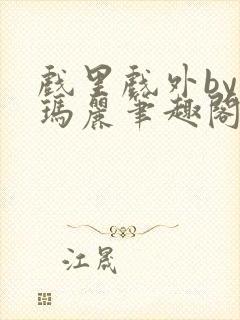 戲里戲外by
瑪麗筆趣閣
江晟